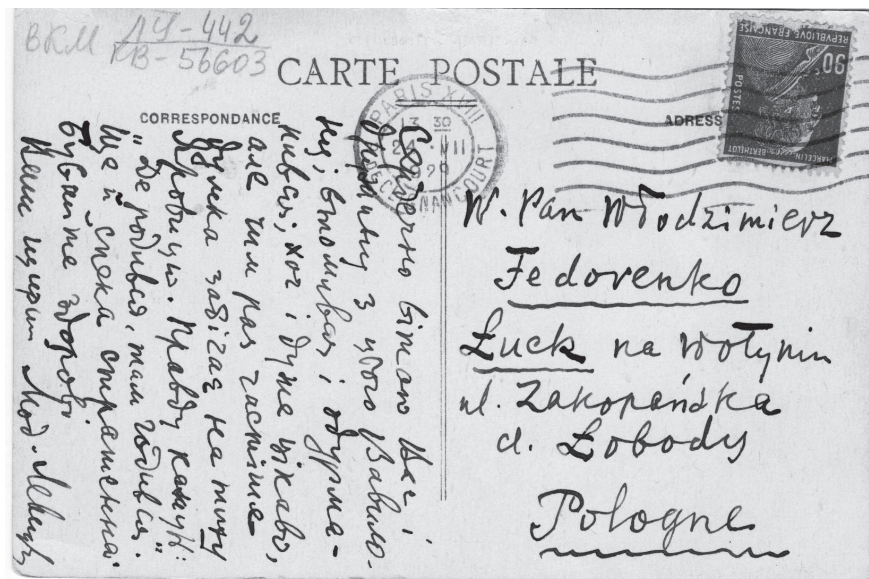 ВКМ ДЧ-442
КВ-56603
CARTE POSTALE
CORRESPONDANCE
ADRESS
PARIS XVIII
13 30
24 VII
1929
REPVBLIQVE FRANÇAISE
90
POSTES
MARCELIN BERTHELOT
Сердечно вітаю Вас і
дружину з цього Вавило-
ну; втомився і одурма-
нився; хоч і дуже цікаво,
але чим раз частіше
думка забігає на тиху
Правду кажуть:
„Де родився, там годився."
Ще й спека страшенна.
Бувайте здорові
Ваш щирий Мод. Левиц
W. Pan Włodzimierz
Fedorenko
Łuck na Wołyniu
ul. Zakopańska
d. Łobody
Pologne